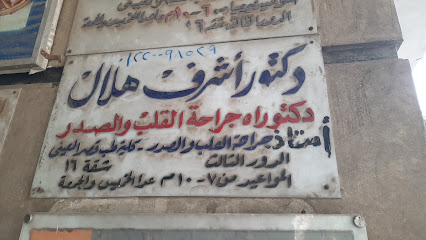 دكتور أشرف هلال
دكتوراه جراحة القلب والصدر
أستاذ جراحة القلب والصدر - كلية طب قصر العينى
الدور الثالث شقة ١٦
المواعيد من ٧ - ١٠ م عدا الخميس والجمعة